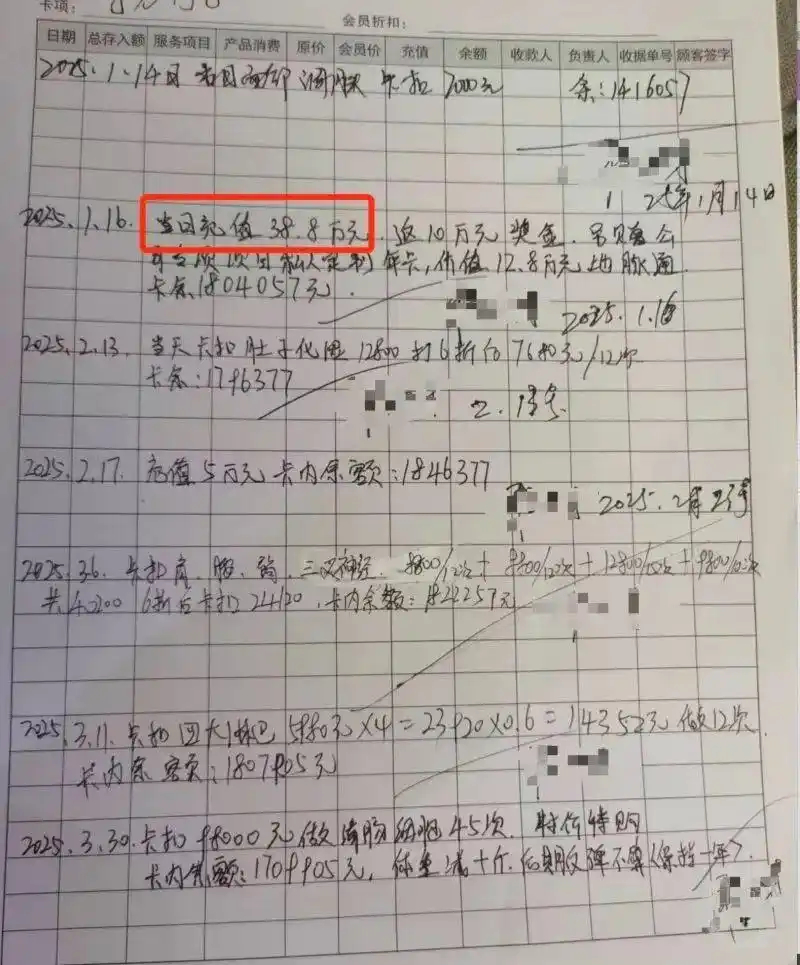 卡项:
会员折扣:
日期 总存入额 服务项目 产品消费 原价 会员价 充值 余额 收款人 负责人 收据单号 顾客签字
2025.1.14日 卡扣 7000元 余:1416057
2025年1月14日
2025.1.16. 当日充值38.8万元. 返10万元奖金.
年卡,价值12.8万元地脉通
卡余1804057元.
2025.1.16
2025.2.13. 当天卡扣肚子化湿12800打6折后7680元/12次
卡余:1796377
2.13号
2025.2.17. 充值5万元卡内余额:1846377
2025.2月
2025.3.6. 卡扣肩、腰、 三叉神经. 9800/12次+9800/12次+12800/12次+9800/12次
共42200 6折后卡扣24120.卡内余额:1822257元
2025.3.11.卡扣四大淋巴5980元×4=23920×0.6=14352元 做12次
卡内余额:1807905元
2025.3.30.卡扣98000元做 45次. 特价特购
卡内余额:1709905元,体重减十斤.后期反弹不算(保持一年).